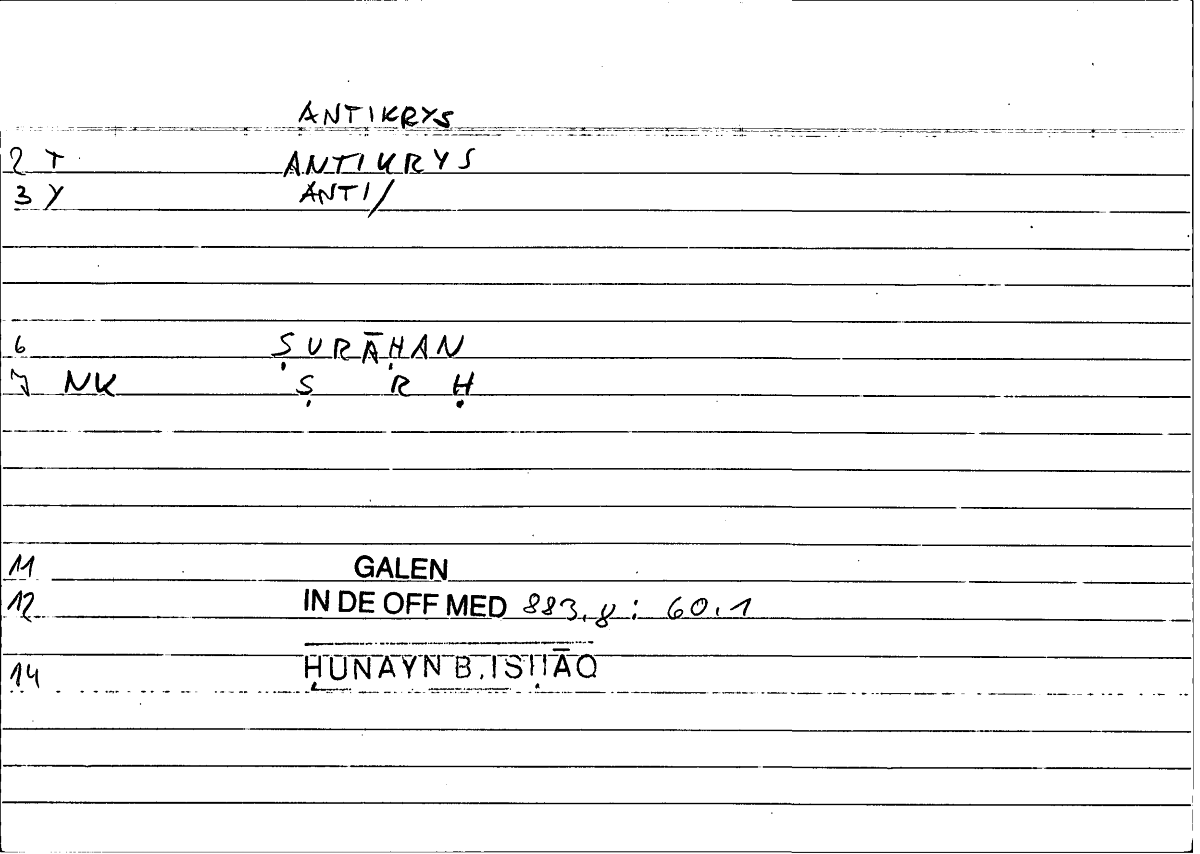 ANTIKRYS
2 T ANTIKRYS
3 Y ANTI/
6 ṢURĀḤAN
7 NK Ṣ R Ḥ
11 GALEN
12 IN DE OFF MED 883,8 : 60,1
14 ḤUNAYN B. ISḤĀQ